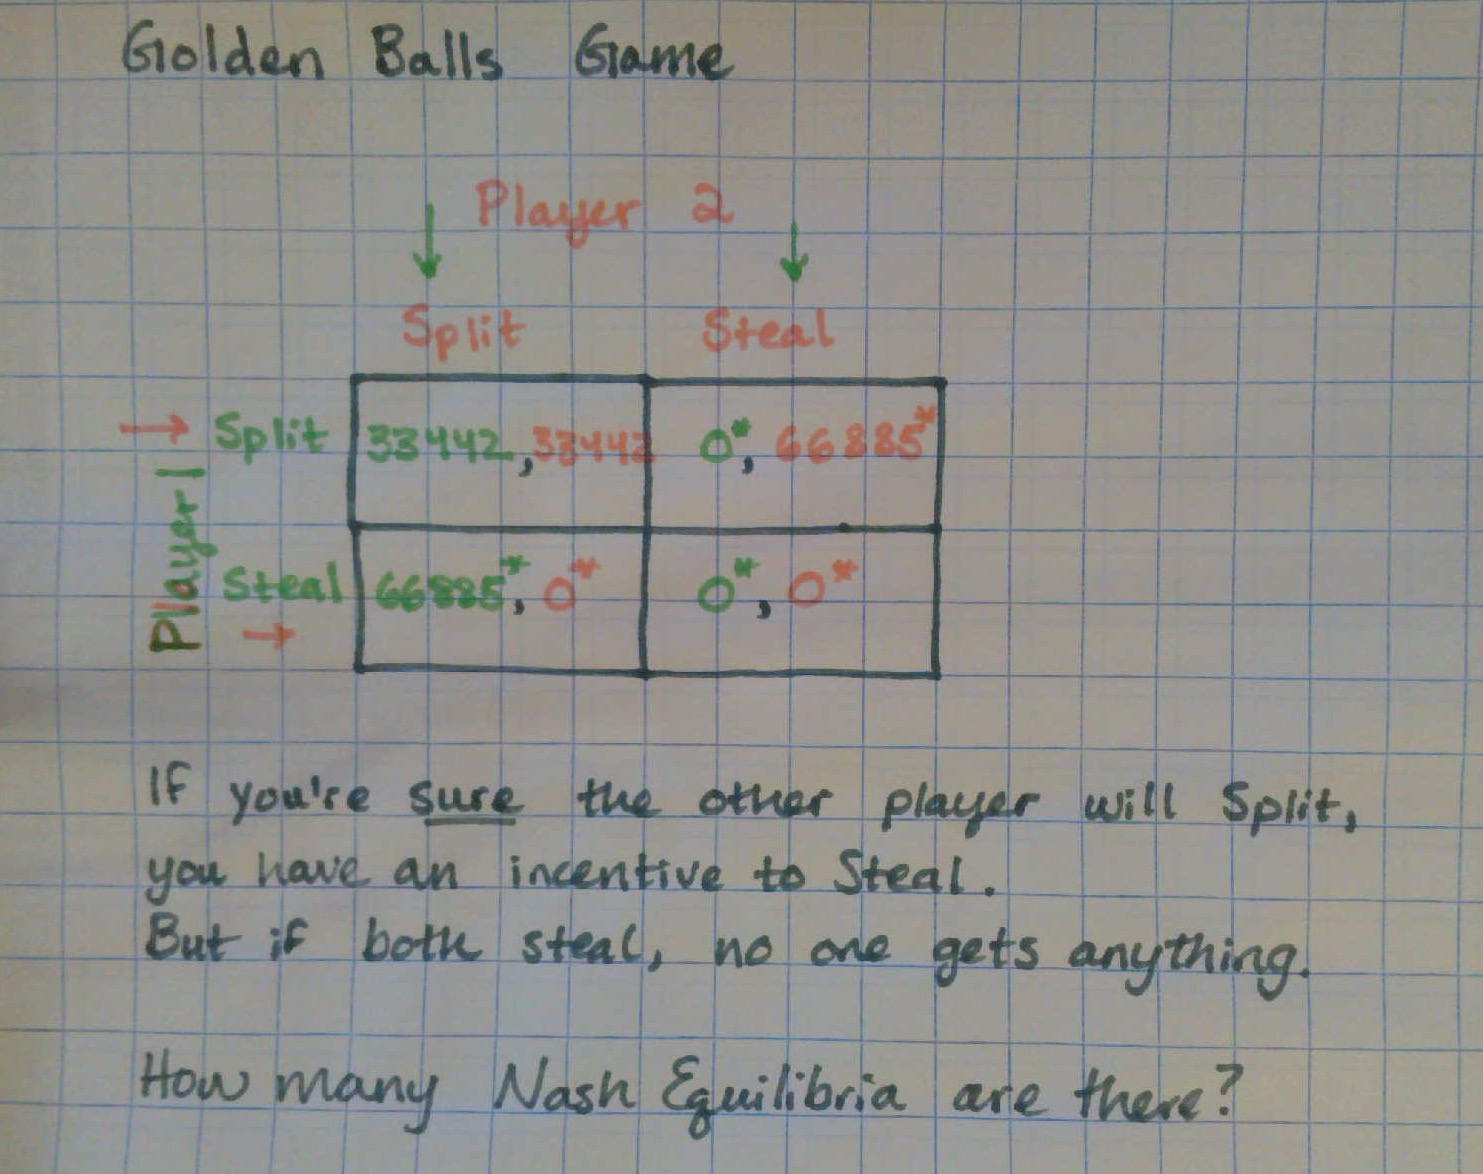 Golden Balls Game
Player 2
Split Steal
Split 33442, 33442 0*, 66885*
Player 1
Steal 66885*, 0* 0*, 0*
If you're sure the other player will Split,
you have an incentive to Steal.
But if both steal, no one gets anything.
How many Nash Equilibria are there?